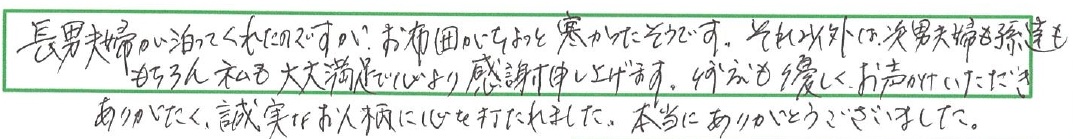 長男夫婦が泊ってくれたのですが、お布団がちょっと寒かったそうです。それ以外は、次男夫婦も孫達も
もちろん私も大大満足で心より感謝申し上げます。いずれも優しく、お声かけいただき
ありがたく、誠実なお人柄に心を打たれました。本当にありがとうございました。